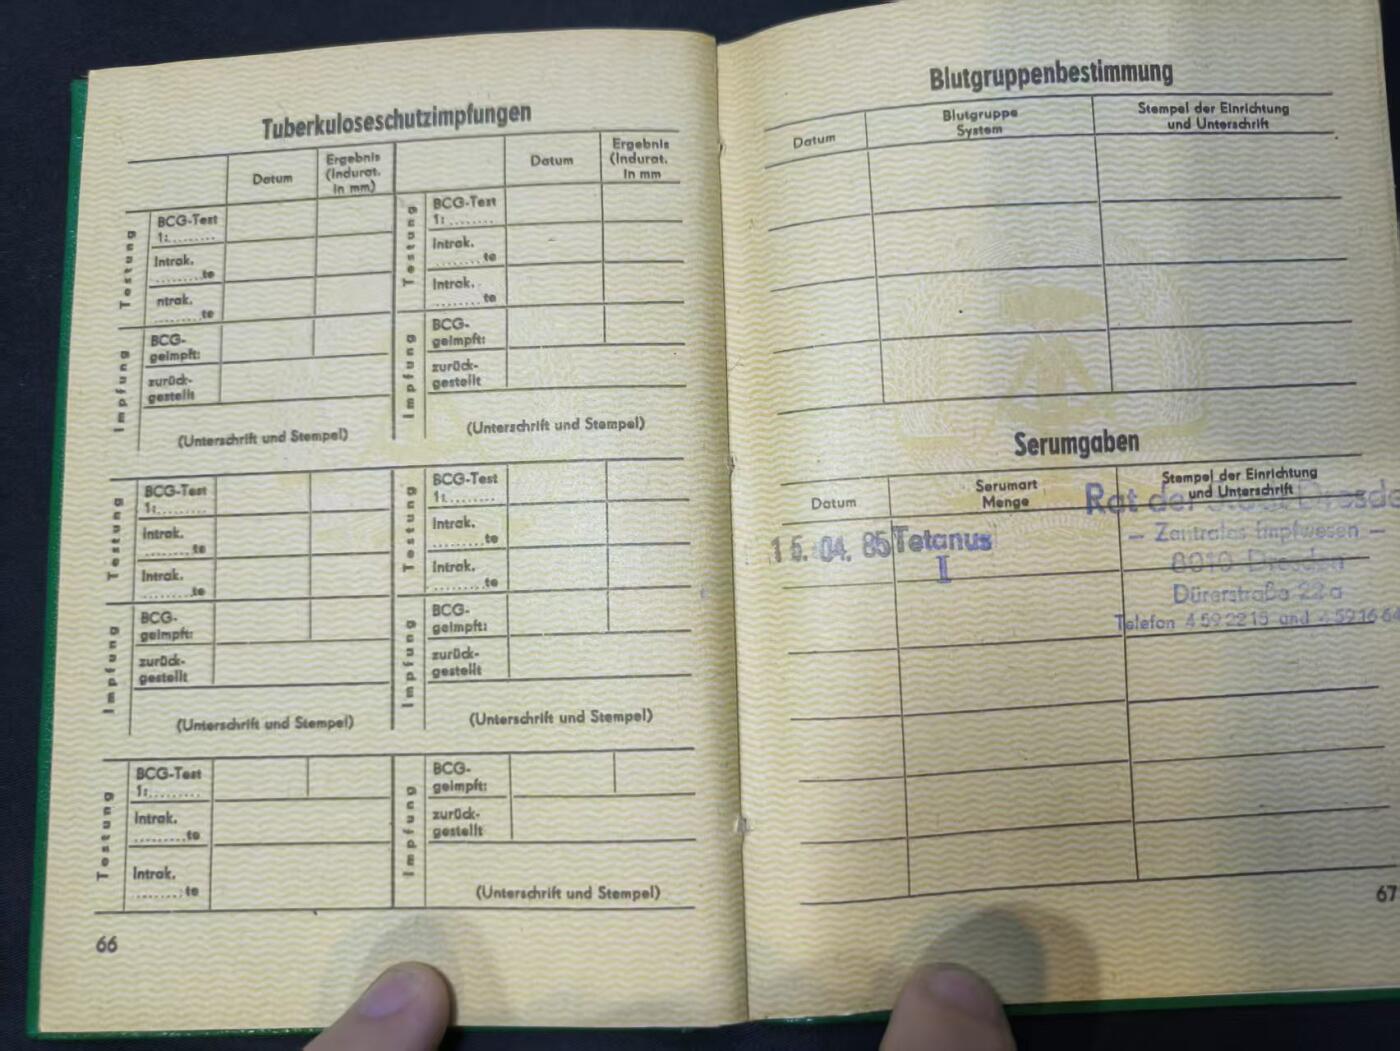 Tuberkuloseschutzimpfungen
Datum
Ergebnis
(Indurat.
in mm)
Datum
Ergebnis
(Indurat.
in mm
Testung
BCG-Test
1:.........
Intrak.
.........te
ntrak.
.........te
Impfung
BCG-
geimpft:
zurück-
gestellt
(Unterschrift und Stempel)
Testung
BCG-Test
1:.........
Intrak.
.........te
Intrak.
.........te
Impfung
BCG-
geimpft:
zurück-
gestellt
(Unterschrift und Stempel)
Testung
BCG-Test
1:.........
Intrak.
.........te
Intrak.
.........te
Impfung
BCG-
geimpft:
zurück-
gestellt
(Unterschrift und Stempel)
Testung
BCG-Test
1:.........
Intrak.
.........te
Intrak.
.........te
Impfung
BCG-
geimpft:
zurück-
gestellt
(Unterschrift und Stempel)
Testung
BCG-Test
1:.........
Intrak.
.........te
Intrak.
.........te
Impfung
BCG-
geimpft:
zurück-
gestellt
(Unterschrift und Stempel)
66
Blutgruppenbestimmung
Datum
Blutgruppe
System
Stempel der Einrichtung
und Unterschrift
Serumgaben
Datum
Serumart
Menge
Stempel der Einrichtung
und Unterschrift
15. 04. 85
Tetanus
I
Rat der Stadt Dresde
– Zentrales Impfwesen –
8010 Dresden
Dürerstraße 22a
Telefon 4 59 22 15 und 4 59 16 64
67